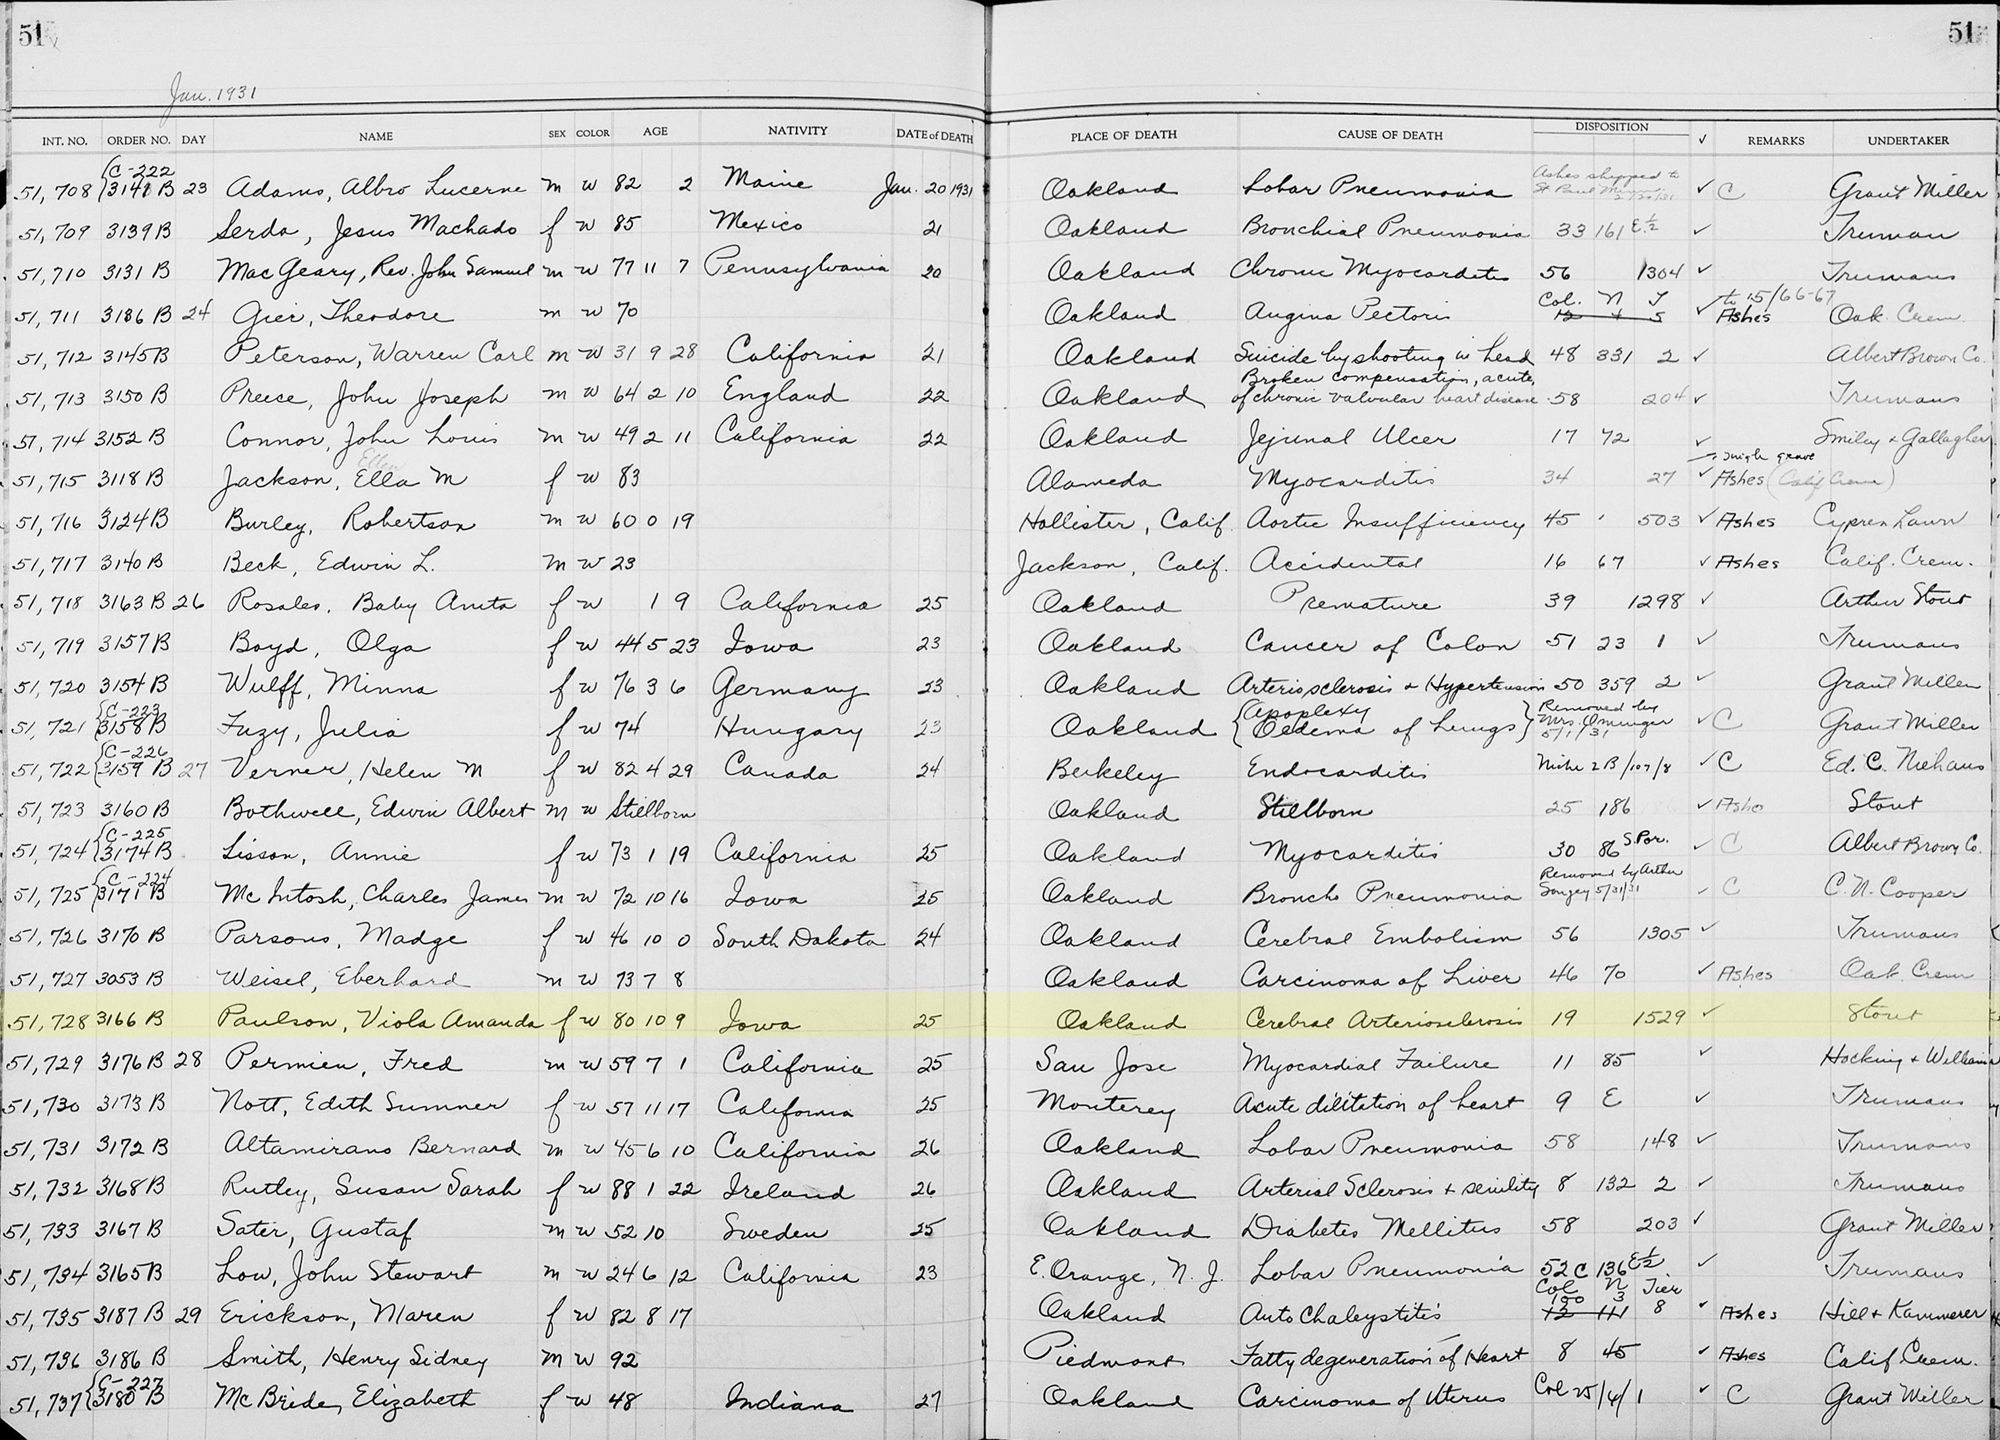 51 51
Jan. 1931
INT. NO. ORDER NO. DAY NAME SEX COLOR AGE NATIVITY DATE of DEATH PLACE OF DEATH CAUSE OF DEATH DISPOSITION ✓ REMARKS UNDERTAKER
C-222 Ashes shipped to
51,708 3141 B 23 Adams, Albro Lucerne m w 82 2 Maine Jan. 20 1931 Oakland Lobar Pneumonia St Paul ✓ C Grant Miller
51,709 3139 B Serda, Jesus Machado f w 85 Mexico 21 Oakland Bronchial Pneumonia 33 161 E½ ✓ Truman
51,710 3131 B MacGeary, Rev. John Samuel m w 77 11 7 Pennsylvania 20 Oakland Chronic Myocarditis 56 1304 ✓ Trumans
Col. N T to 15/66-67
51,711 3186 B 24 Gier, Theodore m w 70 Oakland Angina Pectoris 12 4 5 ✓ Ashes Oak. Crem.
51,712 3145 B Peterson, Warren Carl m w 31 9 28 California 21 Oakland Suicide by shooting in head 48 331 2 ✓ Albert Brown Co.
Broken compensation, acute,
51,713 3150 B Preece, John Joseph m w 64 2 10 England 22 Oakland of chronic valvular heart disease 58 204 ✓ Trumans
51,714 3152 B Connor, John Louis m w 49 2 11 California 22 Oakland Jejunal Ulcer 17 72 ✓ Smiley & Gallagher
Ellen single grave
51,715 3118 B Jackson, Ella M f w 83 Alameda Myocarditis 34 27 ✓ Ashes (Calif Crem)
51,716 3124 B Burley, Robertson m w 60 0 19 Hollister, Calif. Aortic Insufficiency 45 503 ✓ Ashes Cypress Lawn
51,717 3140 B Beck, Edwin L. m w 23 Jackson, Calif. Accidental 16 67 ✓ Ashes Calif. Crem.
51,718 3163 B 26 Rosales, Baby Anita f w 1 9 California 25 Oakland Premature 39 1298 ✓ Arthur Stout
51,719 3157 B Boyd, Olga f w 44 5 23 Iowa 23 Oakland Cancer of Colon 51 23 1 ✓ Trumans
51,720 3154 B Wulff, Minna f w 76 3 6 Germany 23 Oakland Arteriosclerosis & Hypertension 50 359 2 ✓ Grant Miller
C-223 Apoplexy Removed by
51,721 3158 B Fuzy, Julia f w 74 Hungary 23 Oakland Oedema of Lungs Mrs. 5/1/31 ✓ C Grant Miller
C-226
51,722 3159 B 27 Verner, Helen M f w 82 4 29 Canada 24 Berkeley Endocarditis Niche 2 B/107/8 ✓ C Ed. C. Niehaus
51,723 3160 B Bothwell, Edwin Albert m w Stillborn Oakland Stillborn 25 186 ✓ Ashes Stout
C-225
51,724 3174 B Lisson, Annie f w 73 1 19 California 25 Oakland Myocarditis 30 86 S. Por. ✓ C Albert Brown Co.
C-224 Removed by Arthur
51,725 3171 B McIntosh, Charles James m w 72 10 16 Iowa 25 Oakland Broncho Pneumonia 5/31/31 ✓ C C. N. Cooper
51,726 3170 B Parsons, Madge f w 46 10 0 South Dakota 24 Oakland Cerebral Embolism 56 1305 ✓ Trumans
51,727 3053 B Weisel, Eberhard m w 73 7 8 Oakland Carcinoma of Liver 46 70 ✓ Ashes Oak Crem
51,728 3166 B Paulson, Viola Amanda f w 80 10 9 Iowa 25 Oakland Cerebral Arteriosclerosis 19 1529 ✓ Stout
51,729 3176 B 28 Permien, Fred m w 59 7 1 California 25 San Jose Myocardial Failure 11 85 ✓ Hocking & Williams
51,730 3173 B Nott, Edith Sumner f w 57 11 17 California 25 Monterey Acute dilitation of heart 9 E ✓ Trumans
51,731 3172 B Altamirano Bernard m w 45 6 10 California 26 Oakland Lobar Pneumonia 58 148 ✓ Trumans
51,732 3168 B Rutley, Susan Sarah f w 88 1 22 Ireland 26 Oakland Arterial Sclerosis & senility 8 132 2 ✓ Trumans
51,733 3167 B Sater, Gustaf m w 52 10 Sweden 25 Oakland Diabetes Mellitus 58 203 ✓ Grant Miller
51,734 3165 B Low, John Stewart m w 24 6 12 California 23 E. Orange, N. J. Lobar Pneumonia 52 C 136 E½ ✓ Trumans
Col N Tier
150 3
51,735 3187 B 29 Erickson, Maren f w 82 8 17 Oakland Auto Chaleystitis 12 141 8 ✓ Ashes Hill & Kammerer
51,736 3186 B Smith, Henry Sidney m w 92 Piedmont Fatty degeneration of Heart 8 45 ✓ Ashes Calif. Crem.
C-227
51,737 3180 B McBride, Elizabeth f w 48 Indiana 27 Oakland Carcinoma of Uterus Col 25/4/1 ✓ C Grant Miller